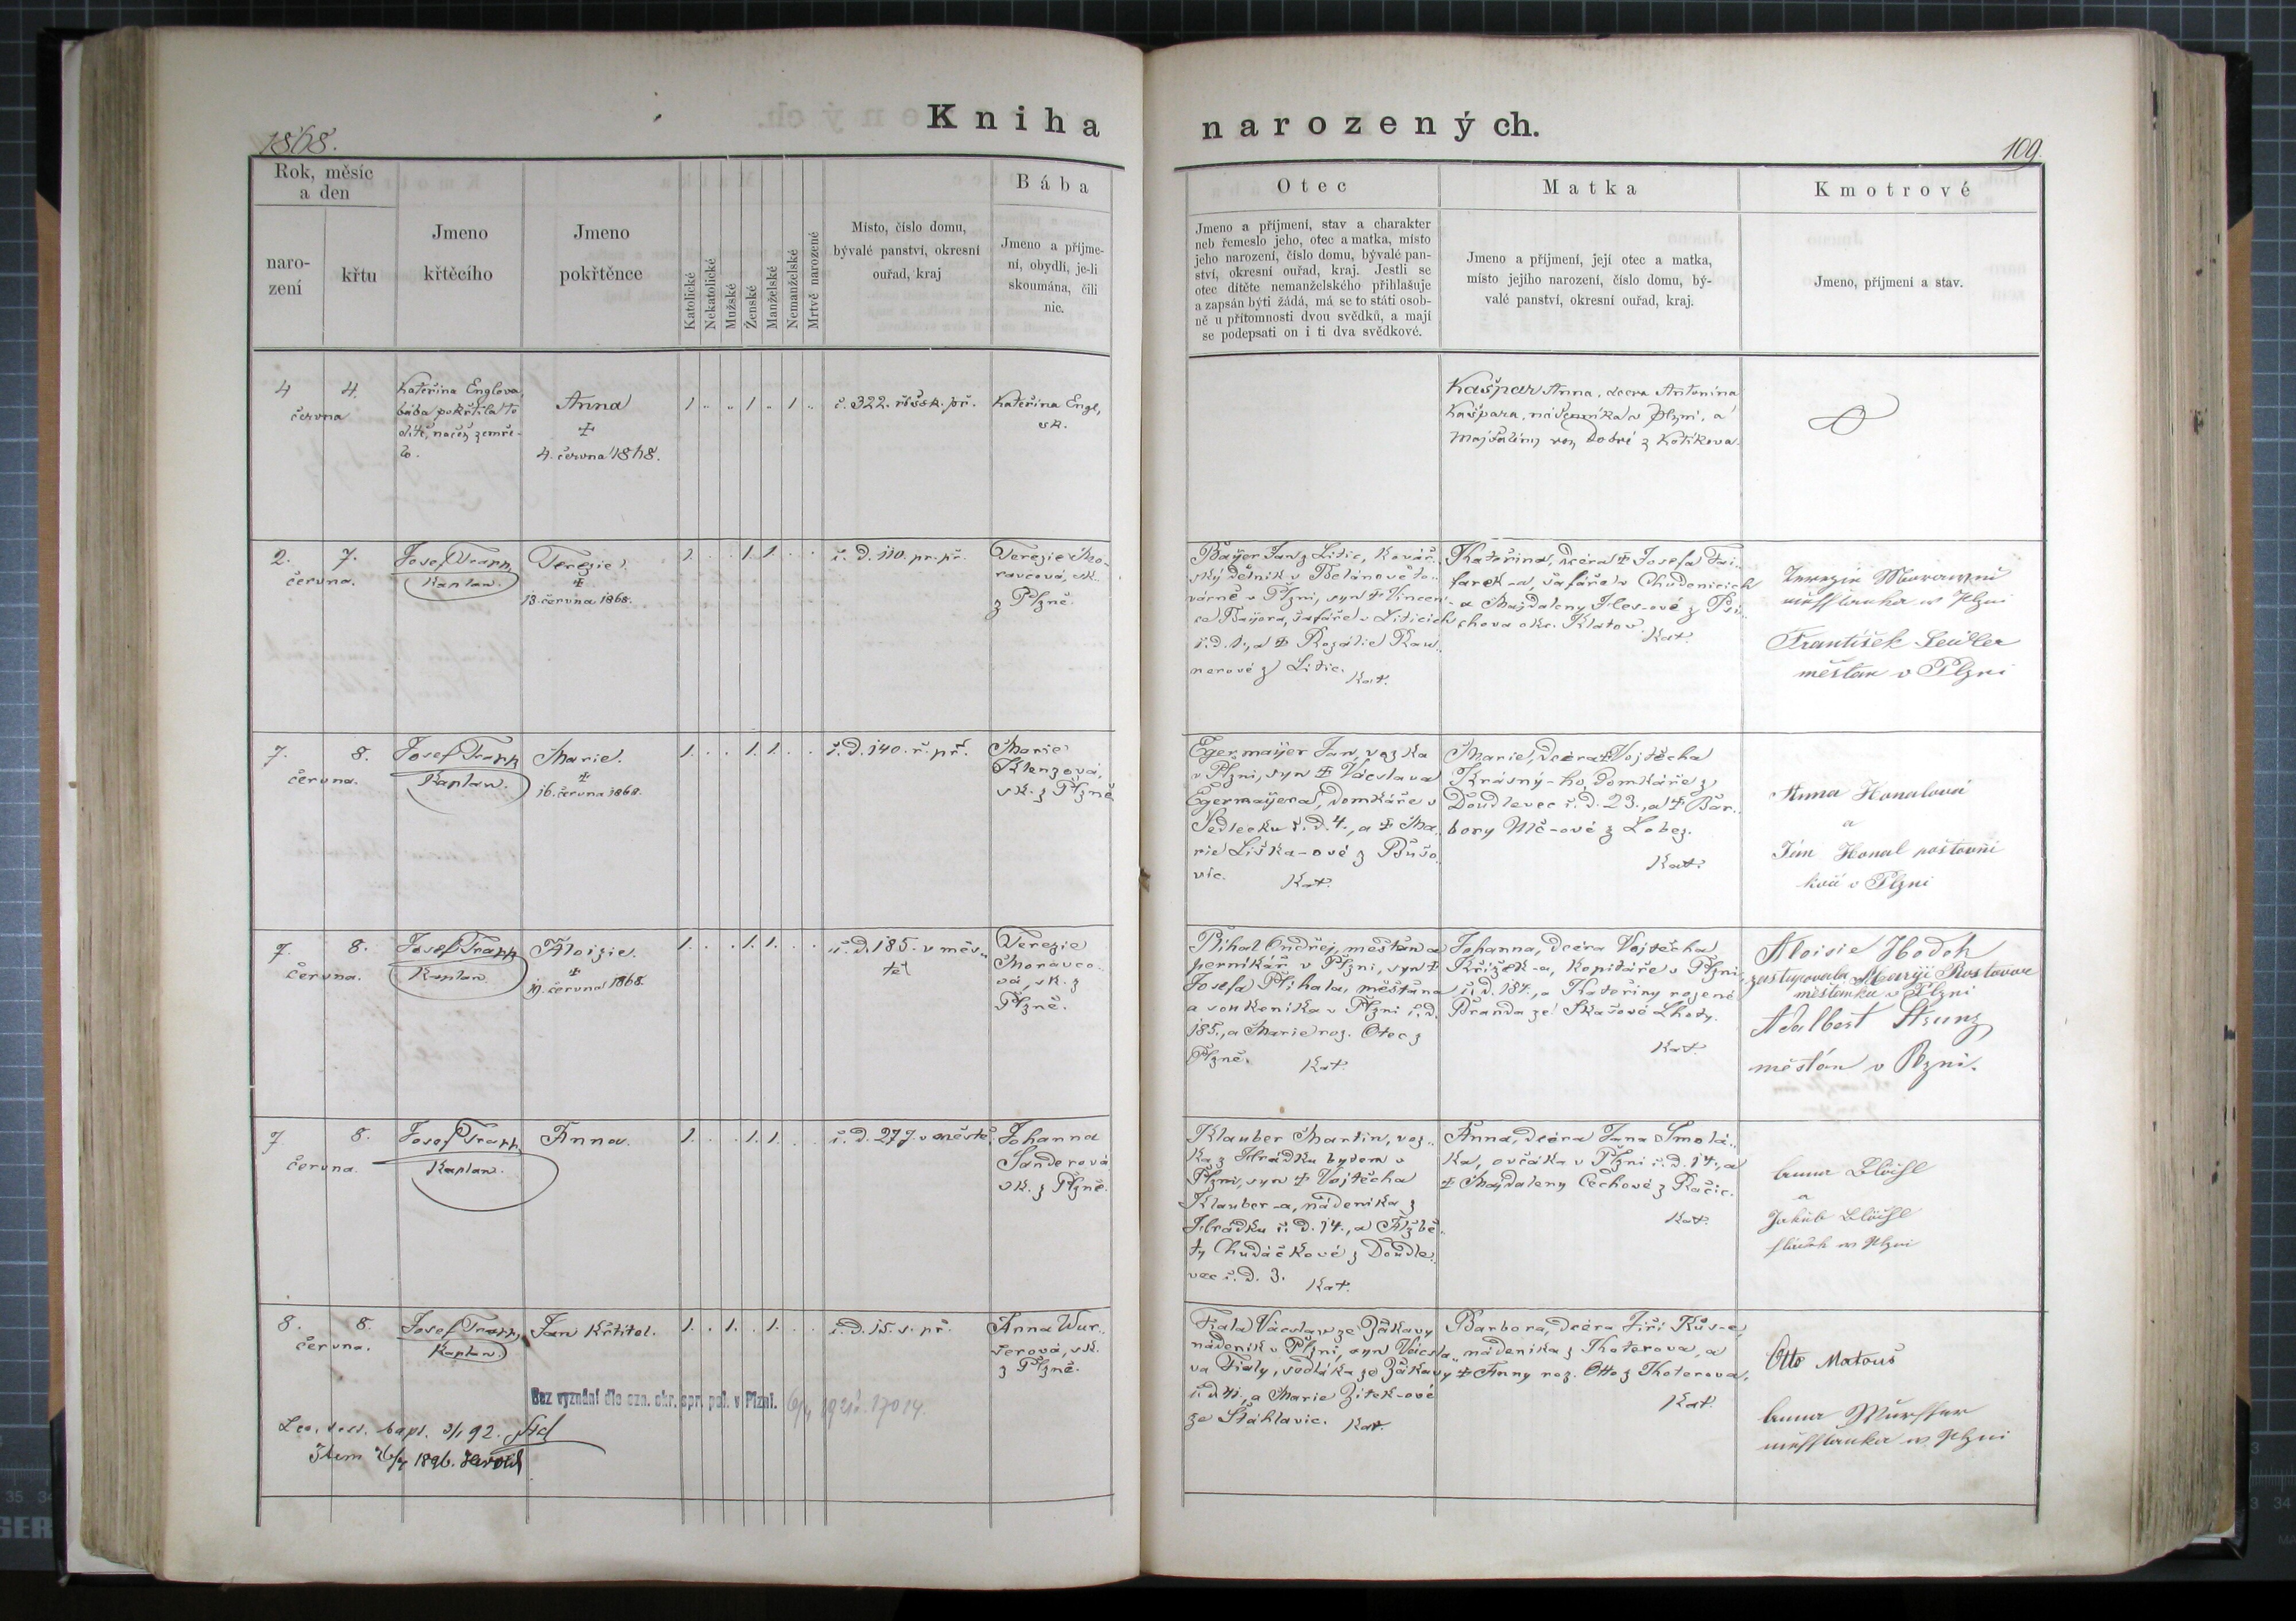 Kniha narozených.
1868.
109.
Rok, měsíc
a den
naro-
zení
křtu
Jmeno
křtěcího
Jmeno
pokřtěnce
Katolické
Nekatolické
Mužské
Ženské
Manželské
Nemanželské
Mrtvě narozené
Místo, číslo domu,
bývalé panství, okresní
ouřad, kraj
Bába
Jmeno a příjme-
ní, obydlí, je-li
skoumána, čili
nic.
Otec
Jmeno a příjmení, stav a charakter
neb řemeslo jeho, otec a matka, místo
jeho narození, číslo domu, bývalé pan-
ství, okresní ouřad, kraj. Jestli se
otec dítěte nemanželského přihlašuje
a zapsán býti žádá, má se to státi osob-
ně u přítomnosti dvou svědků, a mají
se podepsati on i ti dva svědkové.
Matka
Jmeno a příjmení, její otec a matka,
místo jejího narození, číslo domu, bý-
valé panství, okresní ouřad, kraj.
Kmotrové
Jmeno, příjmení a stav.
4 4.
června
Kateřina Englova,
bába pokřtila to
dítě, načež zemře-
lo.
Anna
4. června 1868.
1 . . 1 . 1 .
č. 322. říšsk. př.
Kateřina Engl,
sk.
Kašpar Anna, dcera Antonína
Kašpara, nádeníka v Plzni, a
Majdalény roz. Dobré z Kotíkova.
2. 7.
června.
Josef Trapp,
Kaplan.
Terezie.
13. června 1868.
1. . . 1. 1. . .
č. d. 110. pr. př.
Terezie Mo-
ravcová, sk.
z Plzně.
Bayer Jan z Litic, Kovář-
ský dělník v Belánově to-
várně v Plzni, syn Vincen-
ce Bayera, šafáře v Liticích
č. d. 1., a Rozálie Raw-
nerové z Litic.
Kat.
Kateřina, dcéra Josefa
farek-a, šafáře v Chudenicích
a Majdaleny
chova okr. Klatov.
Kat.
František Seidler
měštan v Plzni
7. 8.
června.
Josef Trapp
Kaplan.
Marie.
16. června 1868.
1. . . 1. 1. . .
č. d. 140. ř. př.
Marie
Klenzová,
sk. z Plzně
Egermaijer Jan, vozka
v Plzni, syn Václava
Egermaijera, domkáře v
Sedlecku č. d. 4., a Ma-
rie Liška-ové z Bušo-
vic.
Kat.
Marie, dcéra Vojtěcha
Krásný-ho, domkáře z
Doudlevec č. d. 23., a Bar-
bory Ulč-ové z Lobez.
Kat.
Anna Honalová
a
Jan Honal poštovní
v Plzni
7. 8.
června.
Josef Trapp
Kaplan
Aloizie.
19. června 1868.
1. . . 1. 1. . .
č. d. 185. v měs-
tě
Terezie
Moravco-
vá, sk. z
Plzně.
Přihal Ondřej, měštan a
pernikář v Plzni, syn
Josefa Přihala, měštana
a soukeníka v Plzni č. d.
185., a Marie roz. Otec z
Plzně.
Kat.
Johanna, dcéra Vojtěcha
Křížek-a, kopidáře v Plzni
č. d. 184., a Kateřiny rozené
Branda ze Skašové Lhoty.
Kat.
Aloisie Hodek
zastupovala
měštanka v Plzni
Adalbert Strunz,
měštán v Plzni.
7 8.
června.
Josef Trapp,
Kaplan.
Anna.
1. . . 1. 1. . .
č. d. 277 v městě
Johanna
Sanderová
sk. z Plzně.
Klauber Martin, voz-
ka z Hrádku bytem v
Plzni, syn Vojtěcha
Klauber-a, nádeníka z
Hrádku č. d. 14., a Alžbě-
ty Chudáčkové z Doudle-
vec č. d. 3.
Kat.
Anna, dcéra Jana Smolá-
ka, ovčáka v Plzni č. d. 14., a
Majdaleny Čechové z Račic.
Kat.
Anna Blöchl
a
Jakub Blöchl
8. 8.
června.
Josef Trapp,
Kaplan.
Jan Křtitel.
1. . 1. . 1. . .
č. d. 15. s. př.
Anna Wur-
ferová, sk.
z Plzně.
Fiala Václav ze Žákavy
nádeník v Plzni, syn Václa-
va Fialy, sedláka ze Žákavy
č. d. 41., a Marie Zitek-ové
ze Šťáhlavic. Kat.
Barbora, dcéra Jiří Růs-e,
nádeníka z Choterova, a
Anny roz. Otto z Choterova.
Kat.
Otto Matouš
Bez vyznání dle ozn. okr. spr. pol. v Plzni. 1921 č. 17014.
bapt. 3/1 92.
Item 26/4 1896.